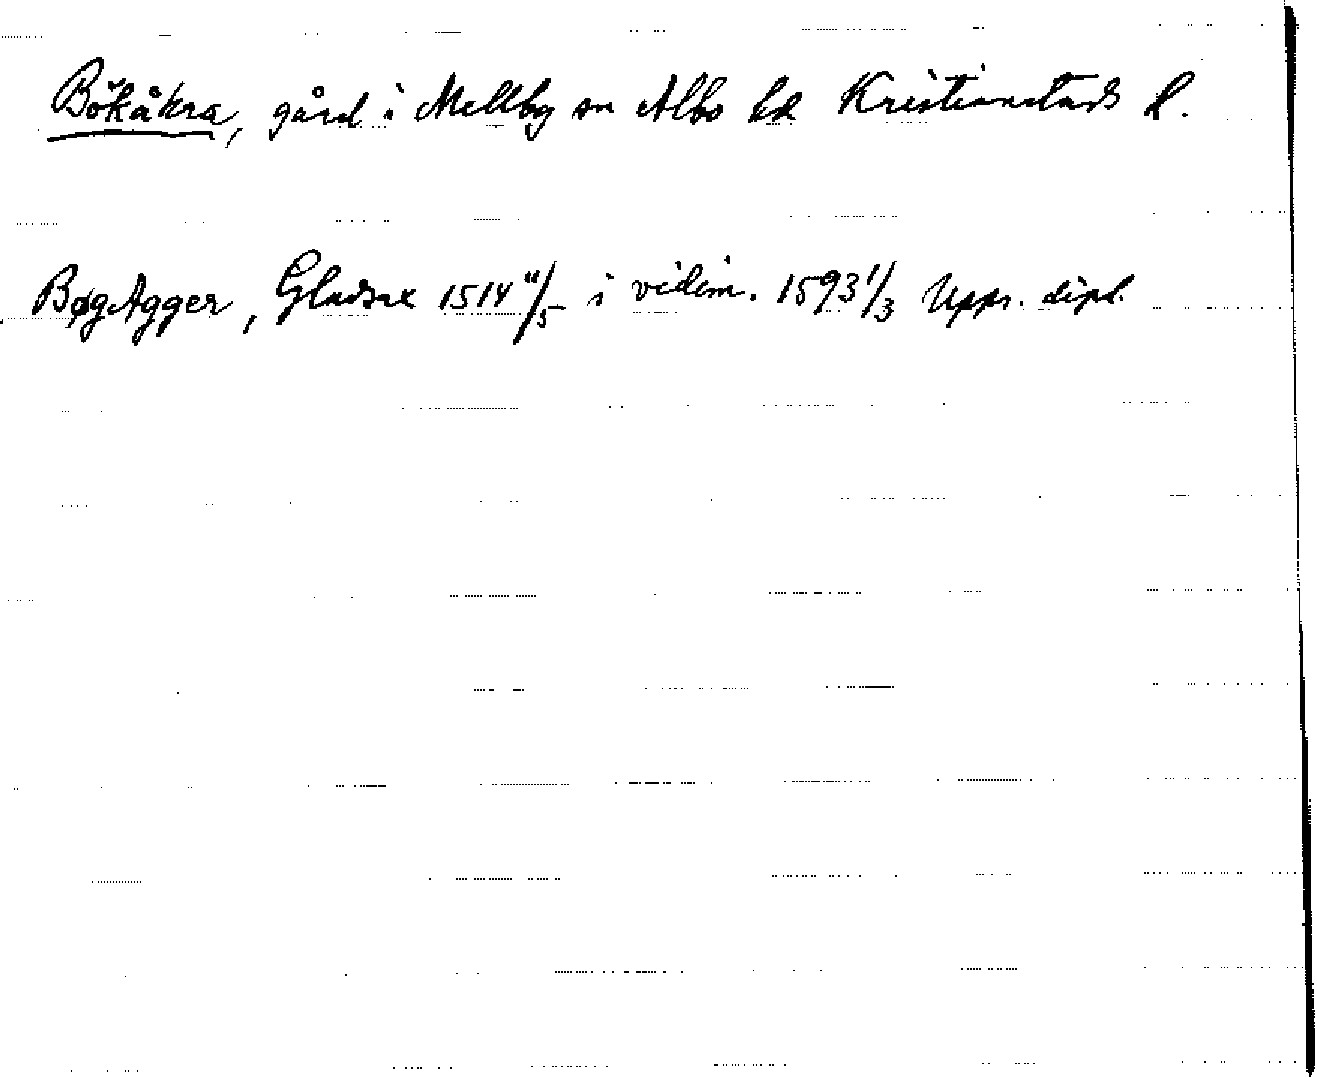 Bökåkra, gård i Mellby sn Albo hd Kristianstads l.
BøgAgger, Gladsax 1514 11/5 i vidim. 1593 1/3 Upps. dipl.